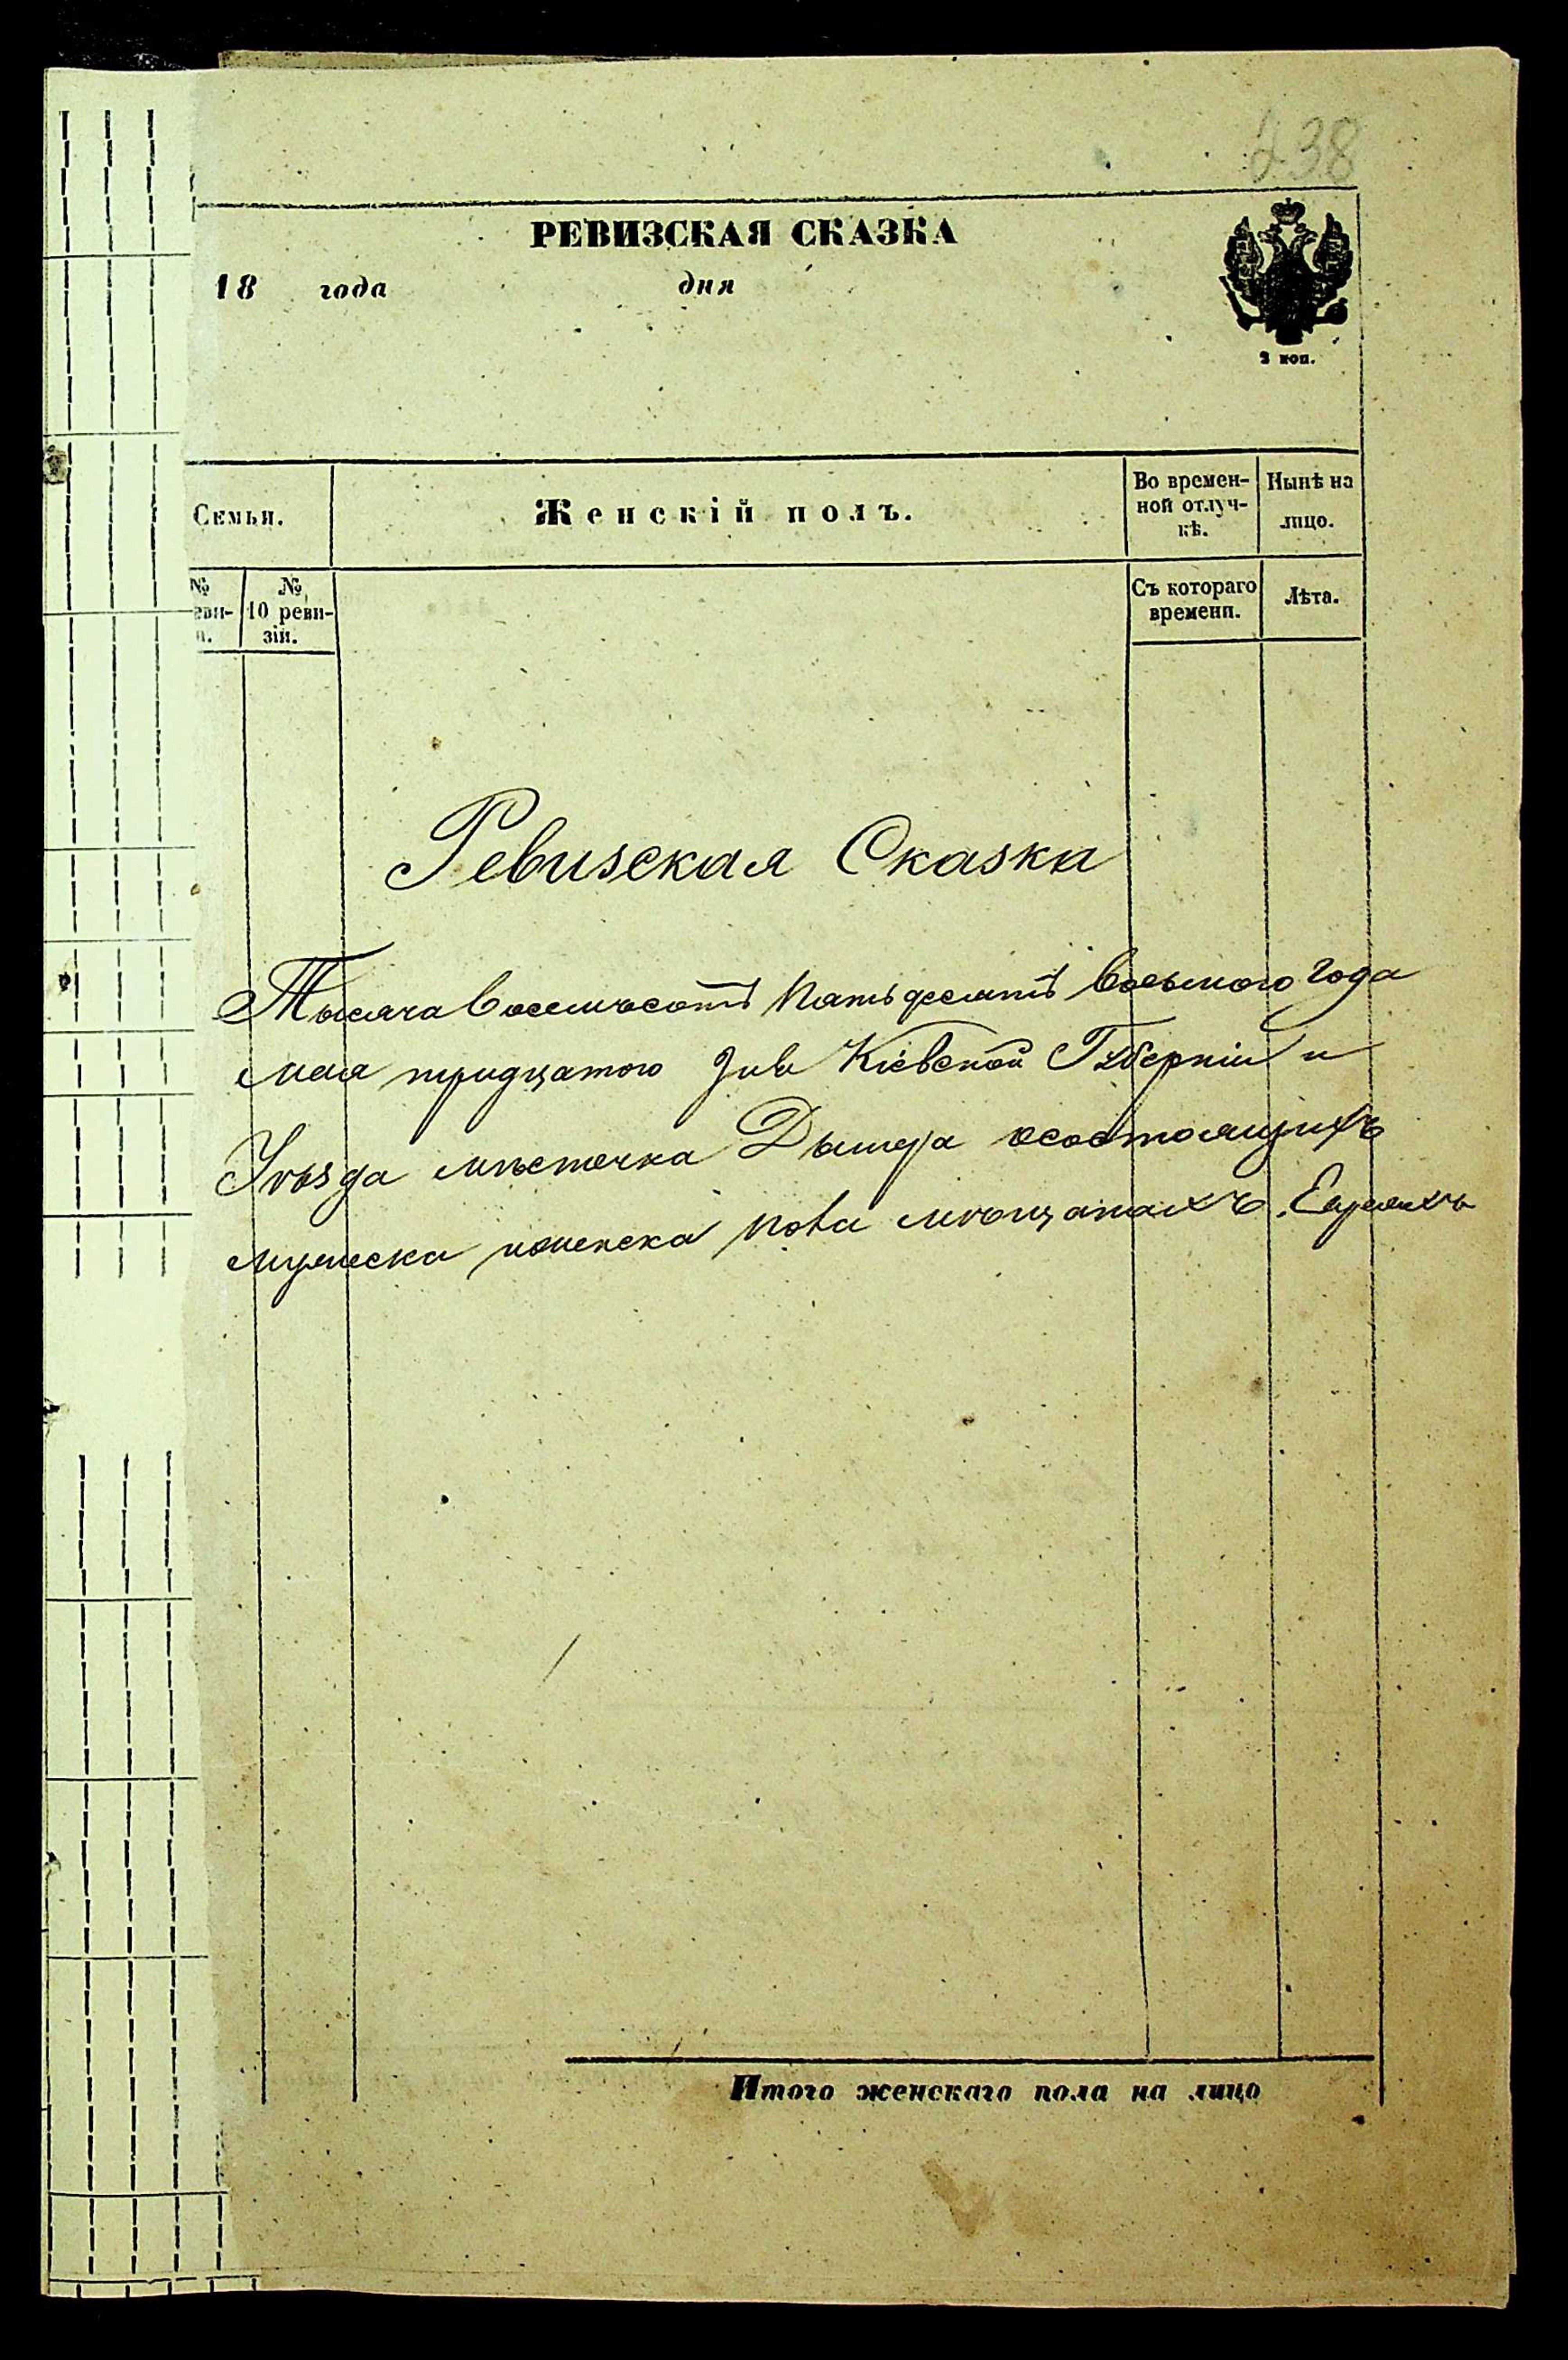 238
РЕВИЗСКАЯ СКАЗКА
18 года дня
2 коп.
Семья.
Женскій полъ.
Во времен-
ной отлуч-
кѣ.
Нынѣ на
лицо.
№
еви-
№
10 реви-
зіи.
Съ котораго
времени.
Лѣта.
Ревизская Сказка
Тысяча восемьсотъ пятьдесятъ восьмого года
мая тридцатого дня Кіевской Губерніи и
Уѣзда мѣстечка Дымера о состоящихъ
мужеска и женска пола мѣщанахъ Евреяхъ
Итого женскаго пола на лицо